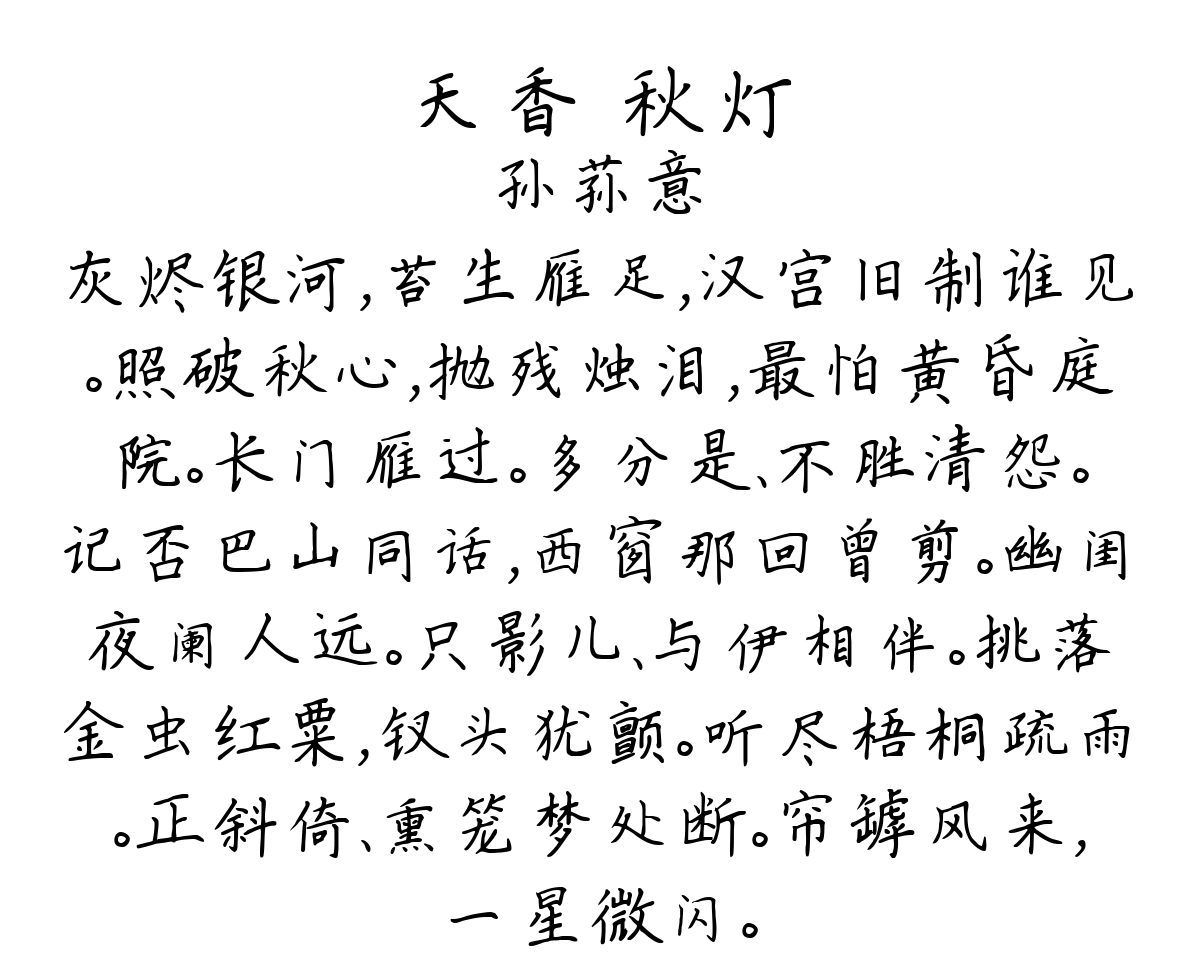 天香 秋灯
孙荪意
灰烬银河,苔生雁足,汉宫旧制谁见
。照破秋心,抛残烛泪,最怕黄昏庭
院。长门雁过。多分是、不胜清怨。
记否巴山同话,西窗那回曾剪。幽闺
夜阑人远。只影儿、与伊相伴。挑落
金虫红粟,钗头犹颤。听尽梧桐疏雨
。正斜倚、熏笼梦处断。帘罅风来,
一星微闪。